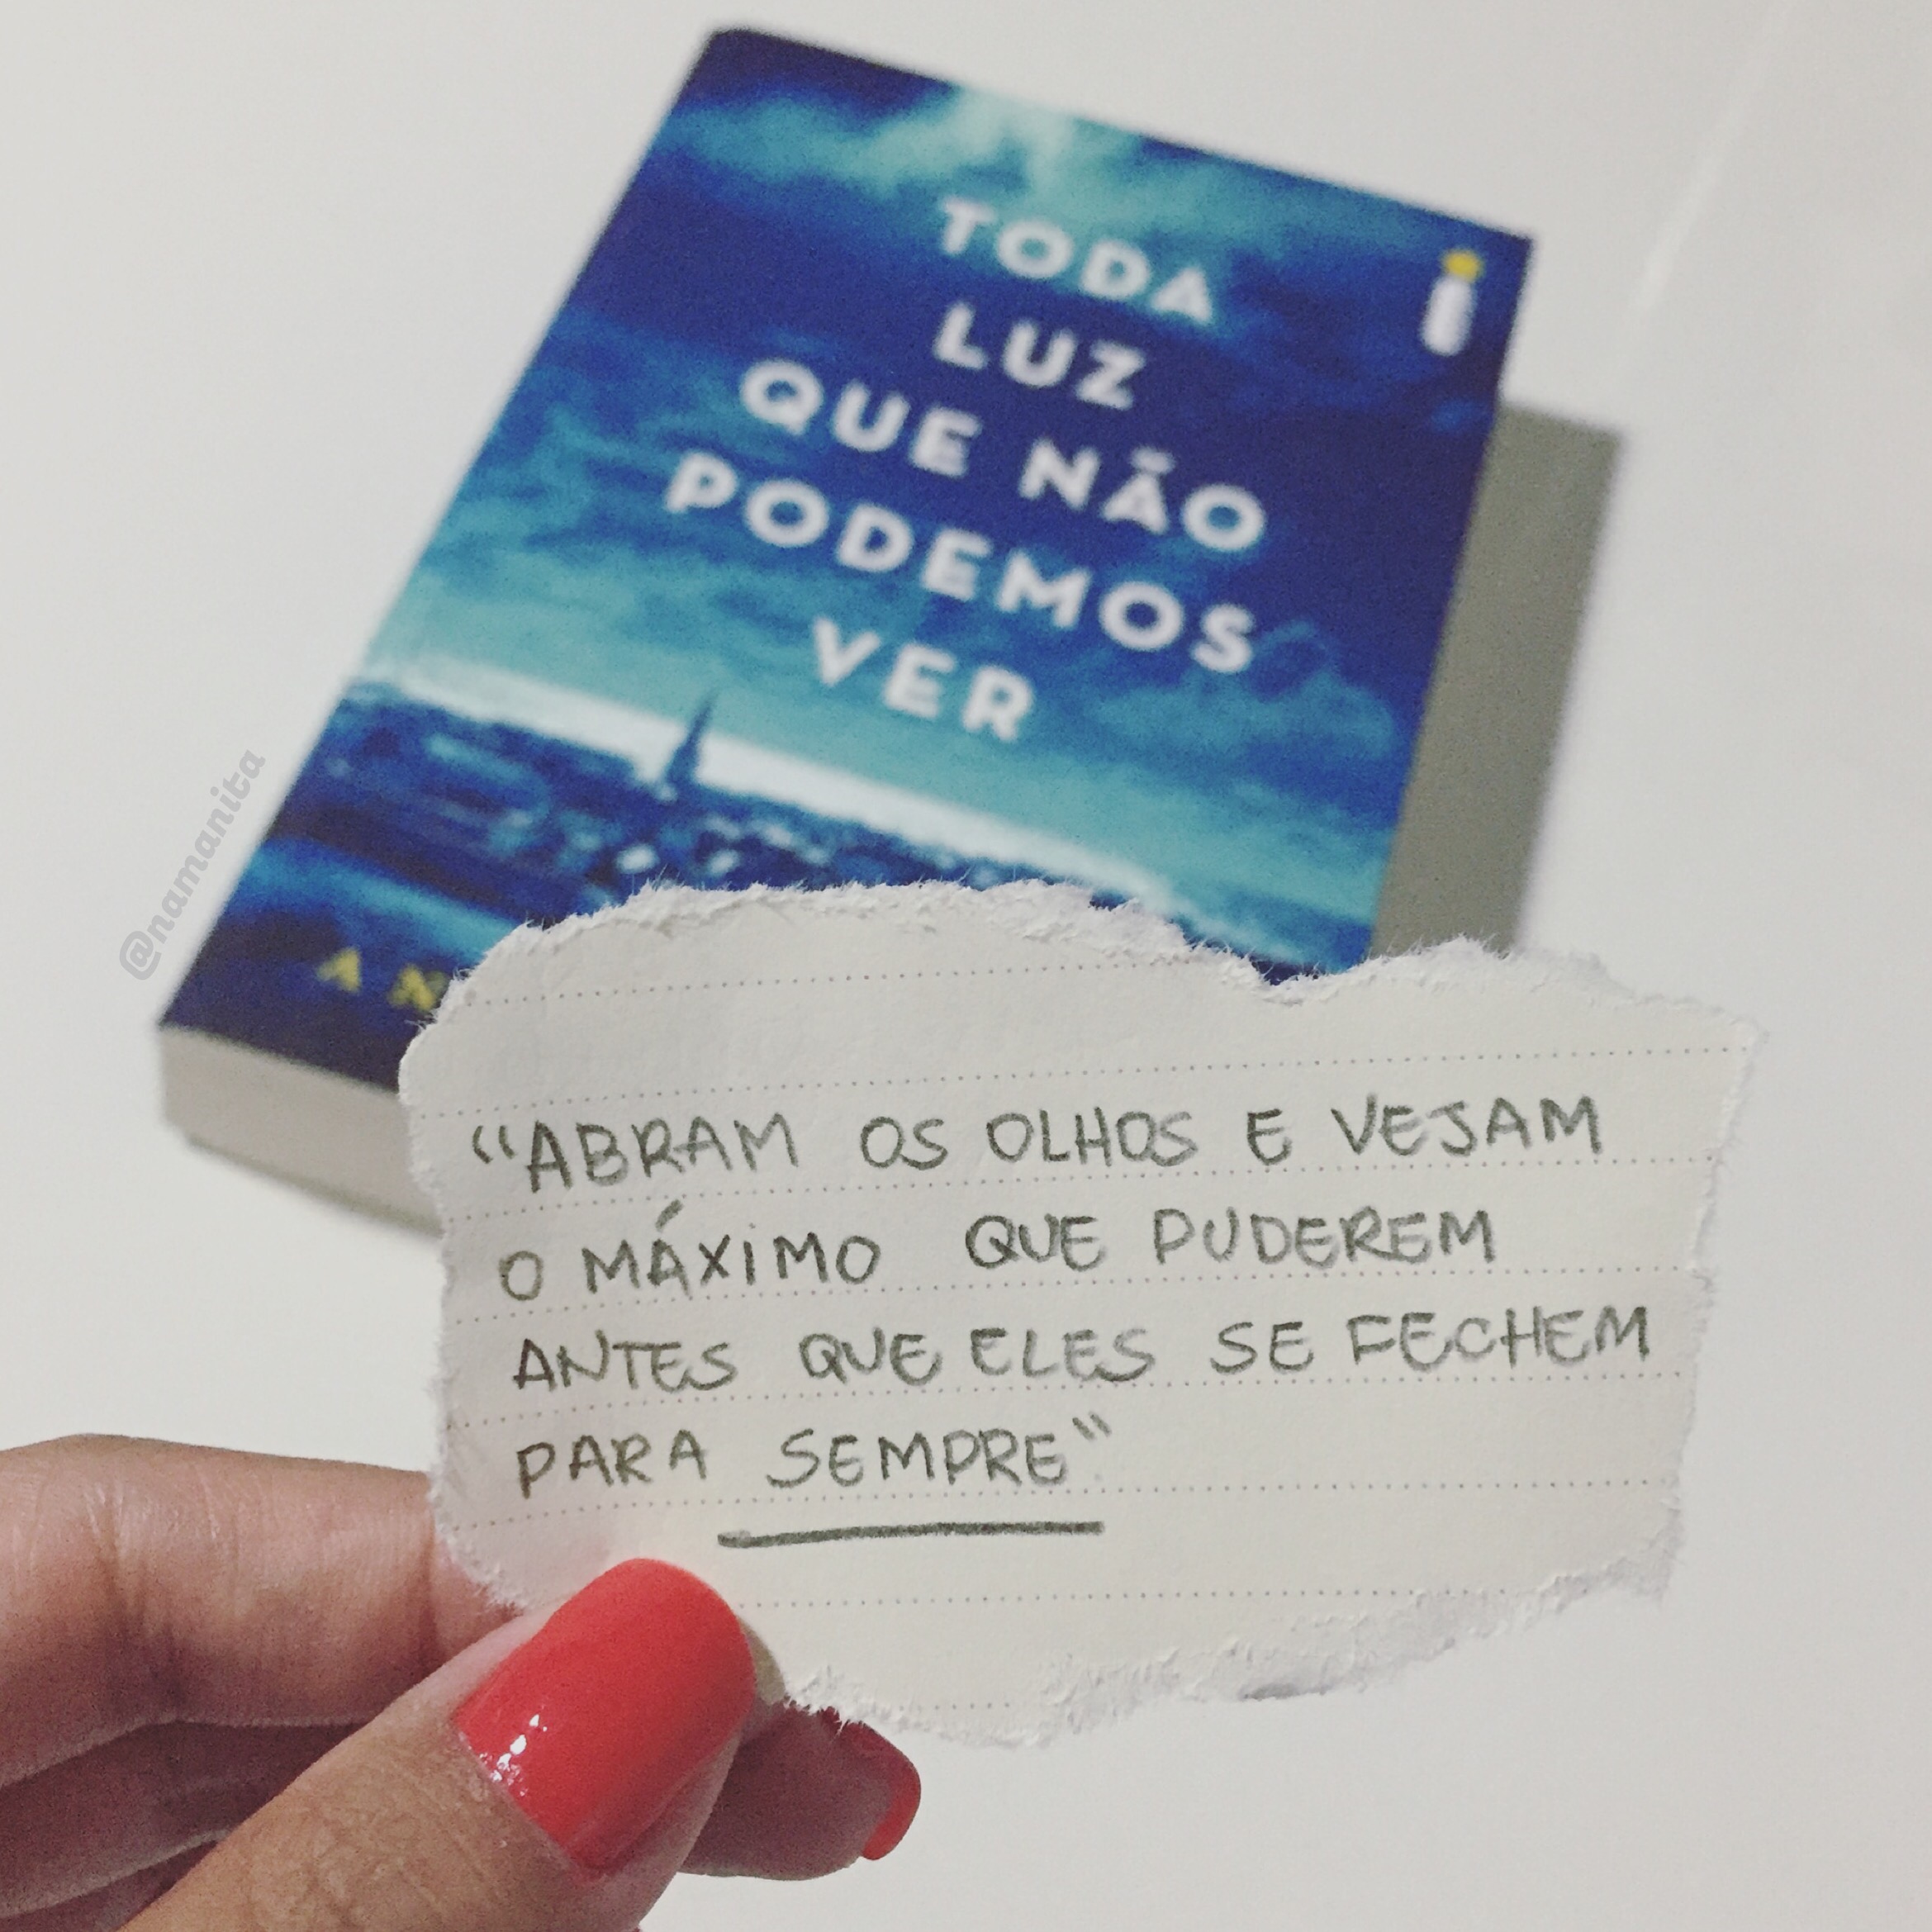 TODA
LUZ
QUE NÃO
PODEMOS
VER
@namanita
"ABRAM OS OLHOS E VEJAM
O MÁXIMO QUE PUDEREM
ANTES QUE ELES SE FECHEM
PARA SEMPRE".